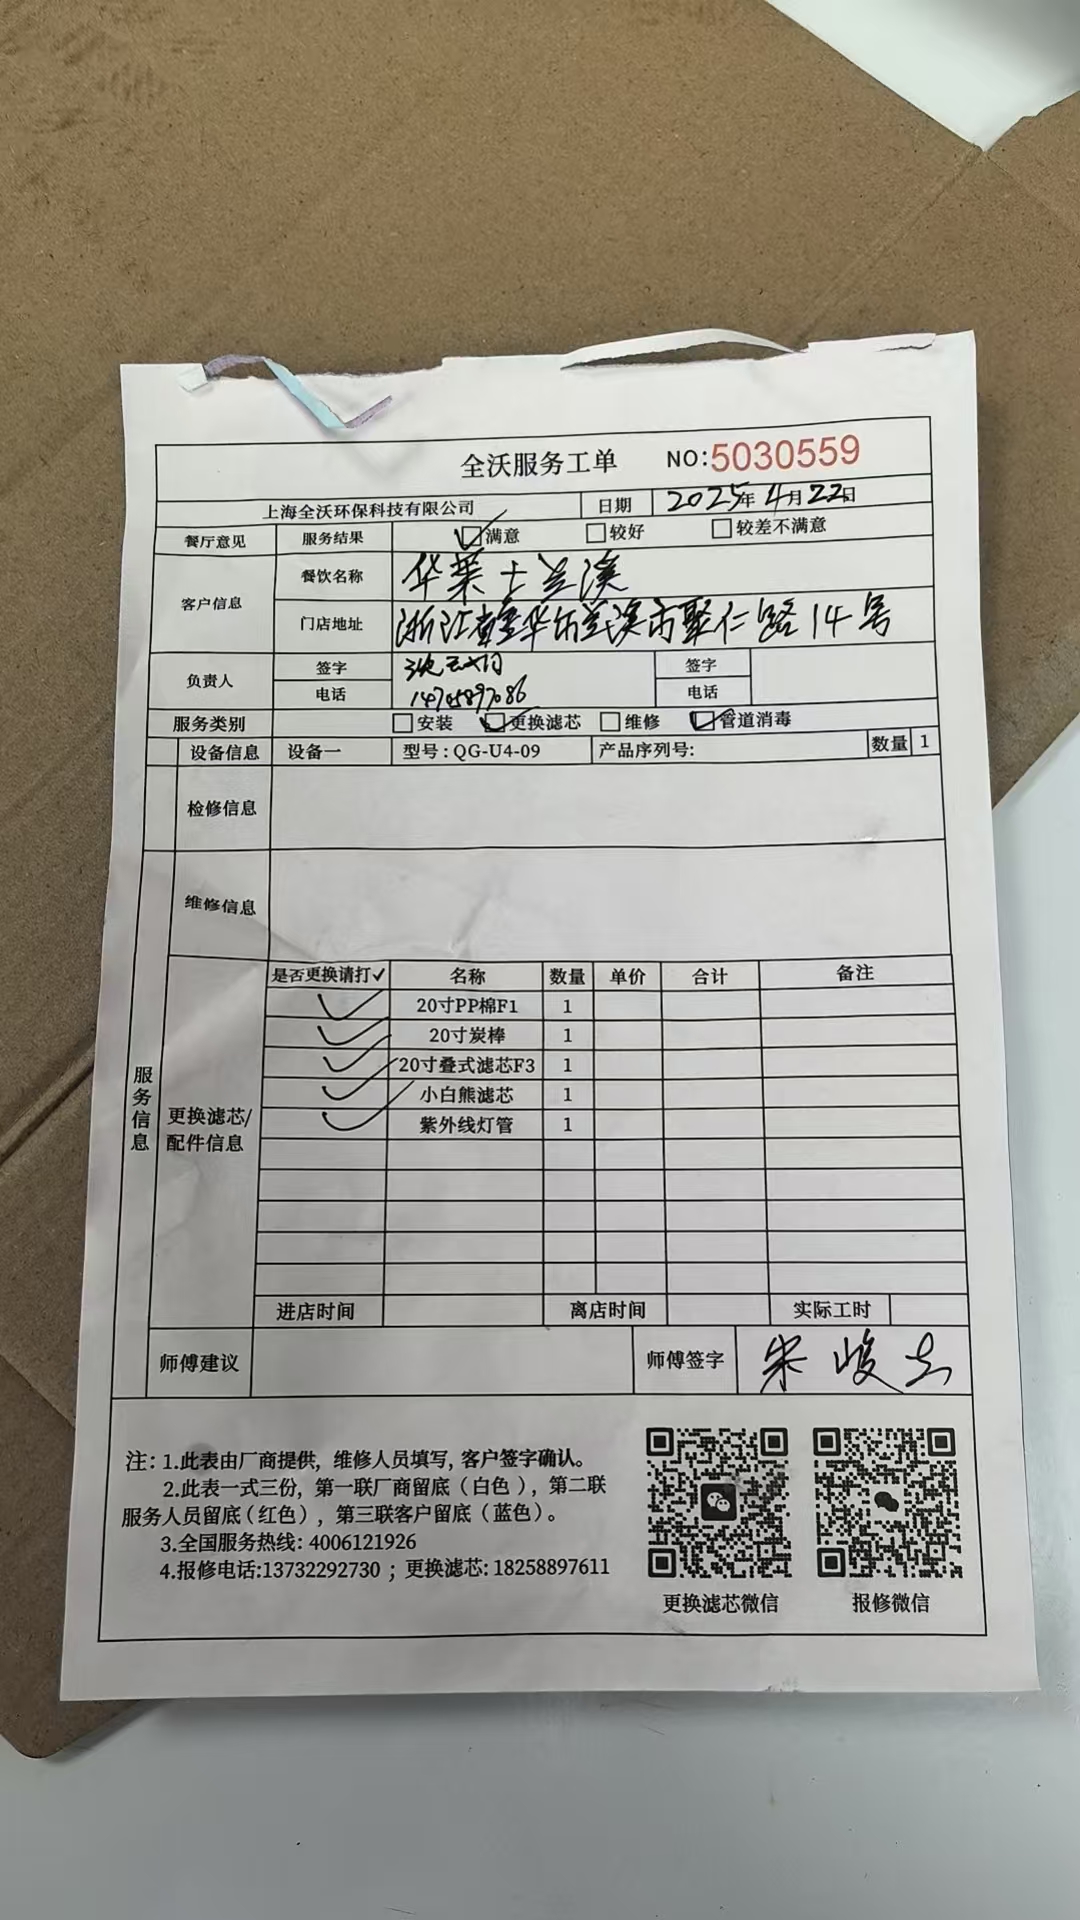 全沃服务工单 NO:5030559
上海全沃环保科技有限公司 日期 2025年4月22日
餐厅意见 服务结果 满意 较好 较差不满意
客户信息 餐饮名称 华莱士兰溪
门店地址 浙江省金华市兰溪市聚仁路14号
负责人 签字 签字
电话 14745897086 电话
服务类别 安装 更换滤芯 维修 管道消毒
设备信息 设备一 型号:QG-U4-09 产品序列号: 数量 1
检修信息
维修信息
服务信息
更换滤芯/配件信息
是否更换请打✓ 名称 数量 单价 合计 备注
✓ 20寸PP棉F1 1
✓ 20寸炭棒 1
✓ 20寸叠式滤芯F3 1
✓ 小白熊滤芯 1
✓ 紫外线灯管 1
进店时间 离店时间 实际工时
师傅建议 师傅签字
注: 1.此表由厂商提供, 维修人员填写, 客户签字确认。
2.此表一式三份, 第一联厂商留底(白色), 第二联
服务人员留底(红色), 第三联客户留底(蓝色)。
3.全国服务热线: 4006121926
4.报修电话:13732292730 ; 更换滤芯: 18258897611
更换滤芯微信 报修微信